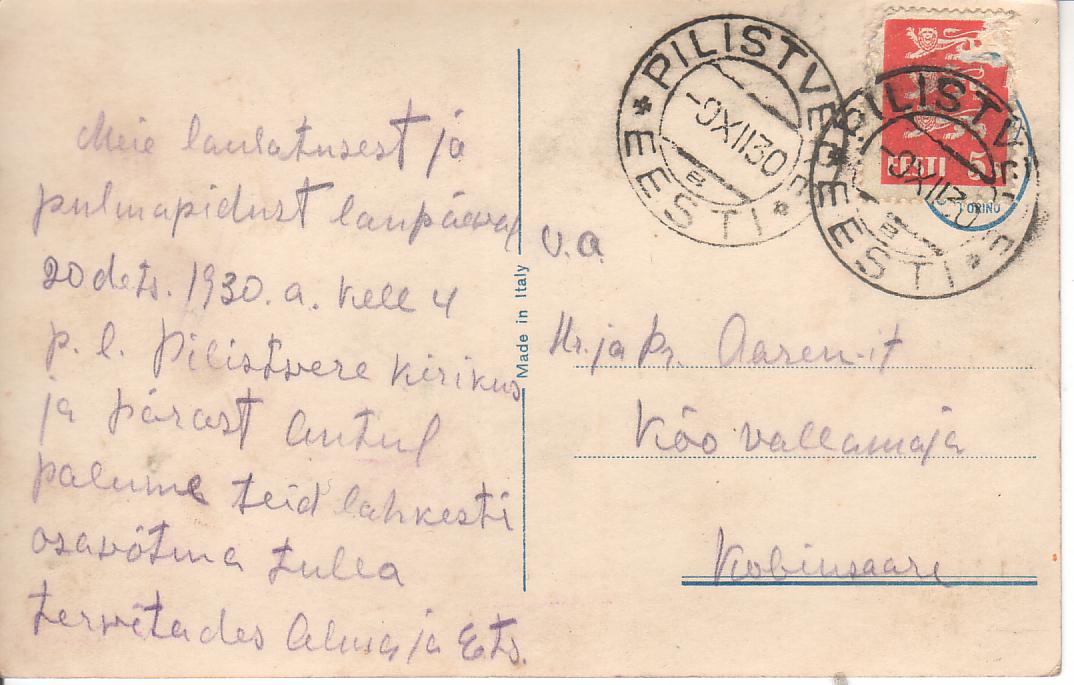 Meie laulatusest ja
pulmapidust laupäeval
20 dets. 1930. a. kell 4
p. l. Pilistvere kirikus
ja pärast Antul
palume teid lahkesti
osavõtma tulla
tervitades Alma ja Ets.
Made in Italy
PILISTVERE
-9XII30
B
EESTI
PILISTVERE
-9XII30
B
EESTI
EESTI 5
TORINO
v. a
Hr. ja Pr. Aaren-it
Kõo vallamaja
Kobinsaare